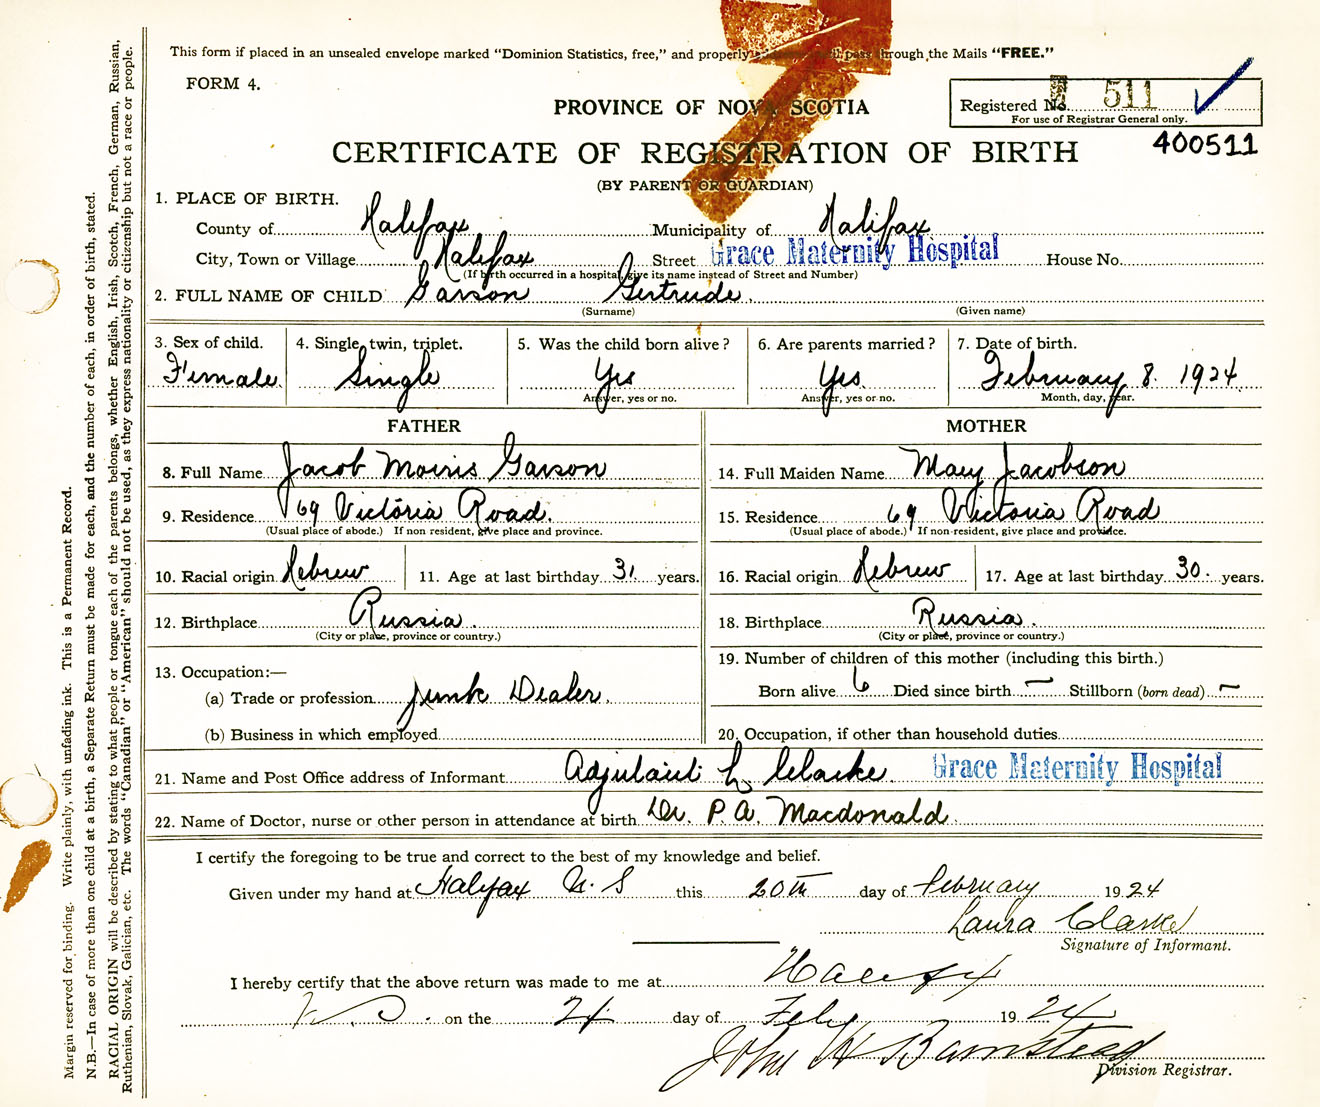 This form if placed in an unsealed envelope marked "Dominion Statistics, free," and properly pass through the Mails "FREE."
FORM 4.
Registered No. 511
For use of Registrar General only.
PROVINCE OF NOVA SCOTIA
400511
CERTIFICATE OF REGISTRATION OF BIRTH
(BY PARENT OR GUARDIAN)
1. PLACE OF BIRTH.
County of Halifax Municipality of Halifax
City, Town or Village Halifax Street Grace Maternity Hospital House No.
(If birth occurred in a hospital, give its name instead of Street and Number)
2. FULL NAME OF CHILD Garson Gertrude.
(Surname) (Given name)
3. Sex of child. 4. Single, twin, triplet. 5. Was the child born alive? 6. Are parents married? 7. Date of birth.
Female Single Yes Yes February 8. 1924.
Answer, yes or no. Answer, yes or no. Month, day, year.
FATHER MOTHER
8. Full Name Jacob Morris Garson 14. Full Maiden Name Mary Jacobson
9. Residence 69 Victoria Road. 15. Residence 69 Victoria Road
(Usual place of abode.) If non resident, give place and province. (Usual place of abode.) If non-resident, give place and province.
10. Racial origin Hebrew 11. Age at last birthday 31 years. 16. Racial origin Hebrew 17. Age at last birthday 30. years.
12. Birthplace Russia. 18. Birthplace Russia.
(City or place, province or country.) (City or place, province or country.)
13. Occupation:— 19. Number of children of this mother (including this birth.)
(a) Trade or profession Junk Dealer. Born alive 6 Died since birth — Stillborn (born dead) —
(b) Business in which employed 20. Occupation, if other than household duties
21. Name and Post Office address of Informant Adjutant L Clarke Grace Maternity Hospital
22. Name of Doctor, nurse or other person in attendance at birth Dr. P. A. Macdonald.
I certify the foregoing to be true and correct to the best of my knowledge and belief.
Given under my hand at Halifax N.S this 20th day of February 1924
Laura Clarke
Signature of Informant.
I hereby certify that the above return was made to me at Halifax
N.S. on the 21 day of Feby 1924
John W Bamstead
Division Registrar.
Margin reserved for binding. Write plainly, with unfading ink. This is a Permanent Record.
N.B.—In case of more than one child at a birth, a Separate Return must be made for each, and the number of each, in order of birth, stated.
RACIAL ORIGIN will be described by stating to what people or tongue each of the parents belongs, whether English, Irish, Scotch, French, German, Russian,
Ruthenian, Slovak, Galician, etc. The words "Canadian" or "American" should not be used, as they express nationality or citizenship but not a race or people.